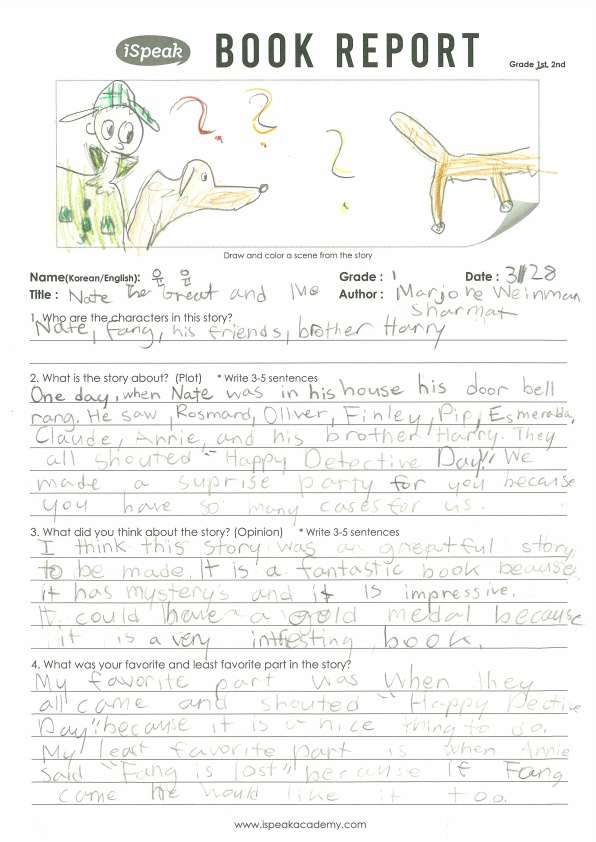 iSpeak BOOK REPORT
Grade 1st, 2nd
Draw and color a scene from the story
Name(Korean/English): 윤 윤 Grade : 1 Date : 3/28
Title : Nate the Great and Me Author : Marjorie Weinman
Sharmat
1. Who are the characters in this story?
Nate, Fang, his friends, brother Harry
2. What is the story about? (Plot) * Write 3-5 sentences
One day, when Nate was in his house his door bell
rang. He saw Rosmard, Oliver, Finley, Pip, Esmerada,
Claude, Annie, and his brother Harry. They
all shouted "Happy Detective Day!" We
made a suprise party for you because
you have so many cases for us.
3. What did you think about the story? (Opinion) * Write 3-5 sentences
I think this story was an greatful story
to be made. It is a fantastic book beause
it has mystery's and it is impressive.
It could have a gold medal because
it is a very intresting book.
4. What was your favorite and least favorite part in the story?
My favorite part was when they
all came and shouted "Happy Dective
Day" because it is a nice thing to do.
My least favorite part is when Annie
said "Fang is lost" because if Fang
came he would like it too.
www.ispeakacademy.com